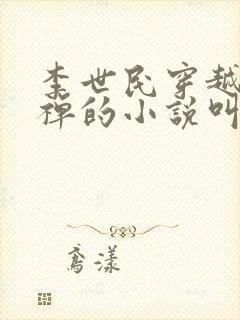 李世民穿越
禅的小说叫
鸢漾